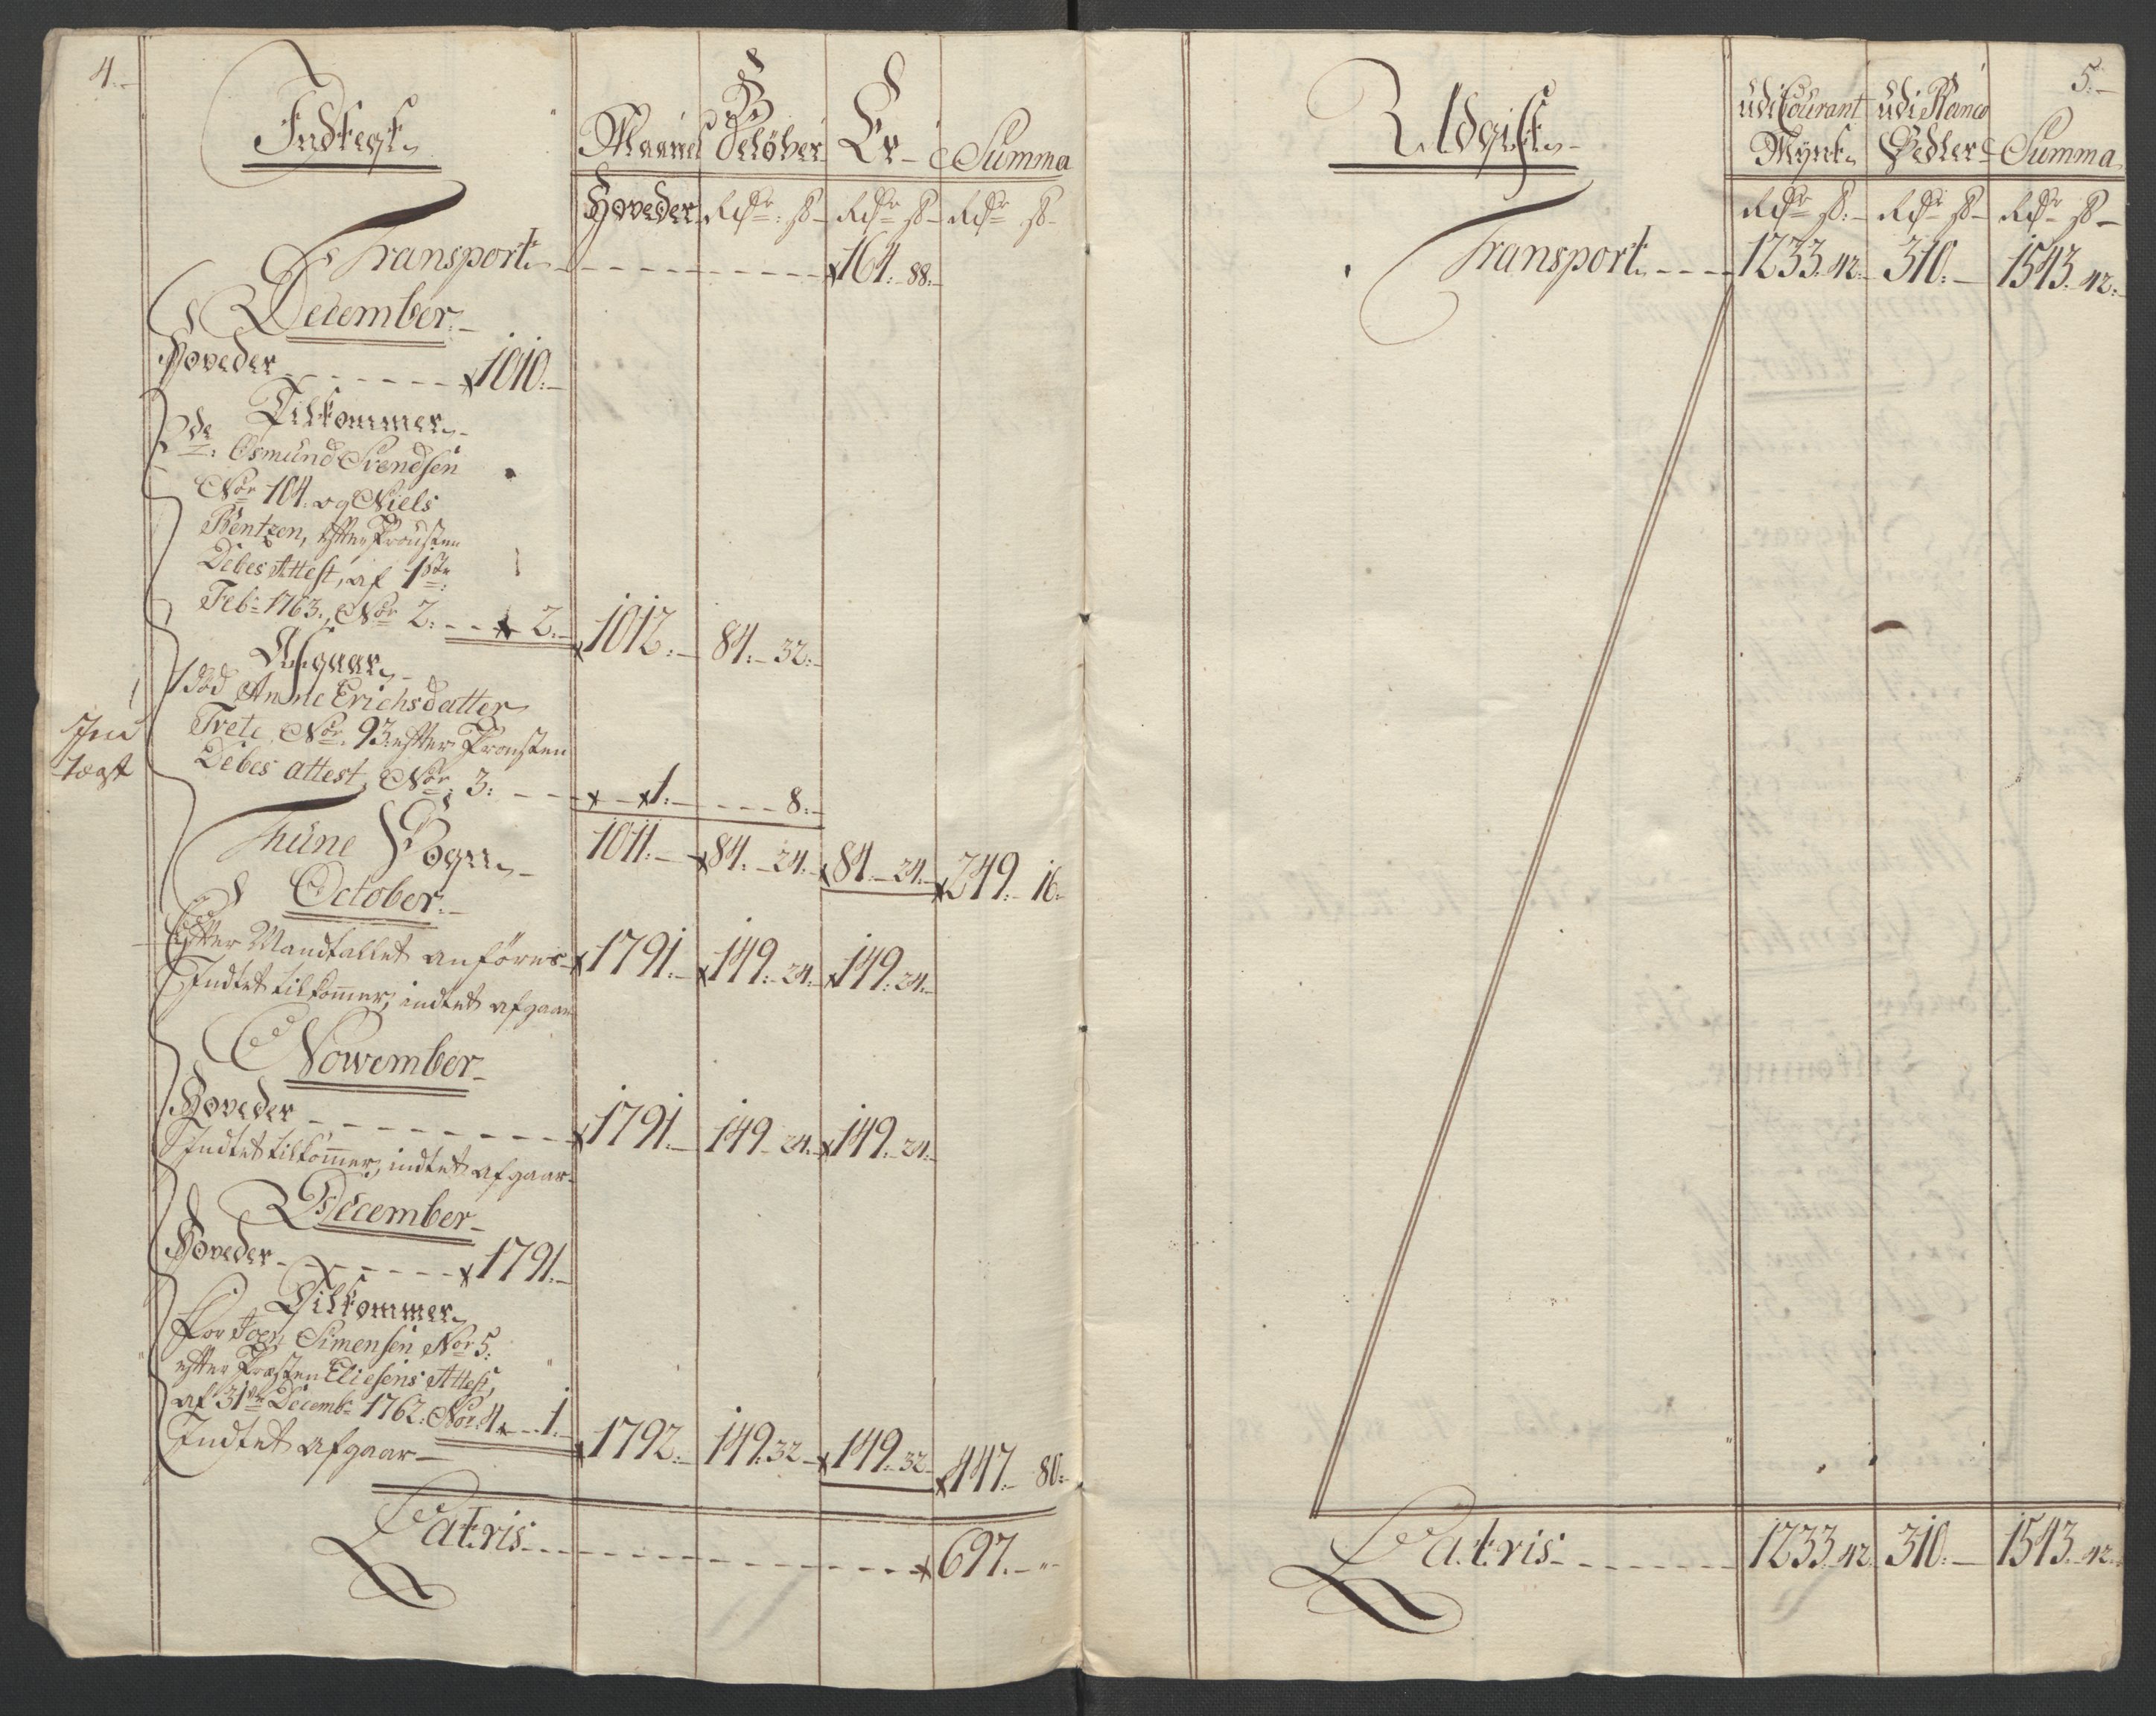 4.-
Indtegt
Maanes Beløber Er Summa
Hoveder Rdr. ß- Rdr ß- Rdr ß-
Transport - - - - 164.- 88.-
December.-
Hoveder - - - - 1010.-
Tilkommer
Osmund Svendsen
Nor 104. og Niels
Bentzen, efter Prousten
Debes Attest, af 1ste
Feb: 1763., Nor 2. - - 2.- 1012.- 84.- 32.-
Afgaar
1 død Anne Erichsdatter
Tvete Nor. 93. efter Prousten
Debes attest, Nor. 3: - - 1.- - - - 8.-
Ind
tægt
Thune Sogn 1011.- 84.- 24.- 84.- 24.- 249.- 16.-
October.-
Efter Mandtallet anføres 1791.- 149.- 24.- 149.- 24.-
Indtet tilkommer, indtet afgaar
November
Hoveder - - - - 1791.- 149.- 24.- 149.- 24.-
Indtet tilkommer, indtet afgaar.
December
Hoveder - - - - 1791.-
Tilkommer
for Joen Simensen Nor 5.
efter Præsten Eliesens Attest,
af 31te Decemb: 1762. Nor. 4 - - 1.-
Indtet afgaar- 1792.- 149. 32- 149.- 32- 447.- 80.-
Latris - - - - 697.- "-
5.-
Udgift
udi Courant udi Banco
Mynt Sedler Summa
Rdr ß.- Rdr ß- Rdr ß-
Transport - - - 1233. 42.- 310.- 1543.- 42.-
Latris - - - - 1233. 42 310.- 1543.- 42.-